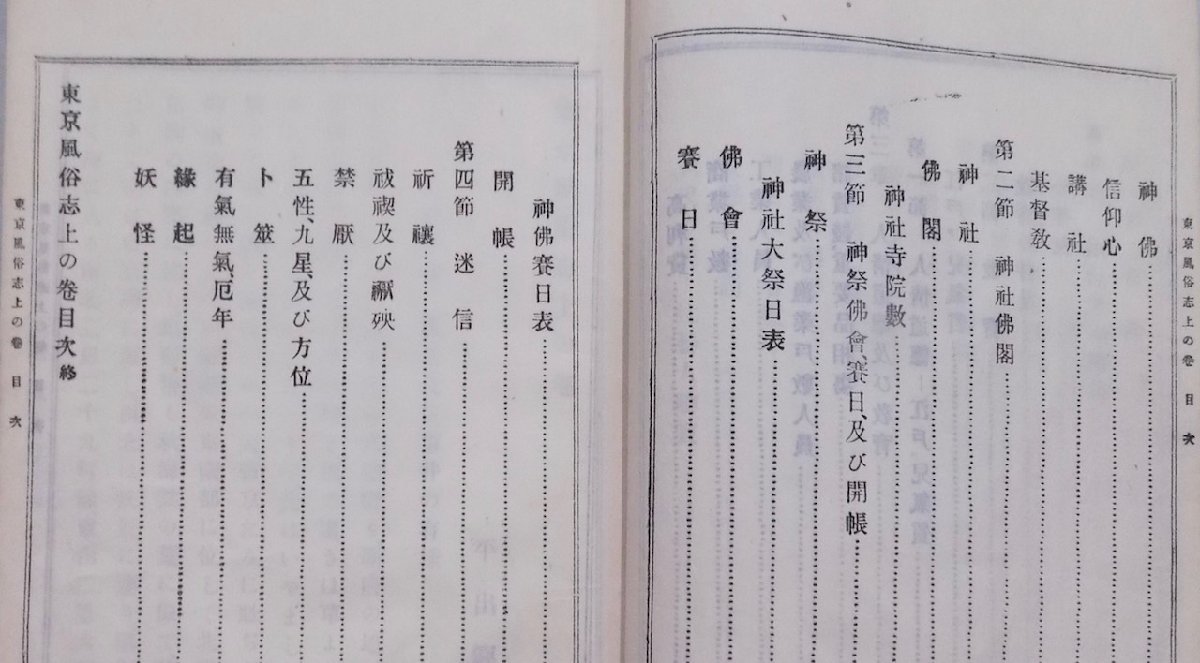 東京風俗志上の卷 目次
神佛
信仰心
講社
基督敎
第二節 神社佛閣
神社
佛閣
神社寺院數
第三節 神祭佛會、賽日、及び開帳
神祭
神社大祭日表
佛會
賽日
神佛賽日表
開帳
第四節 迷信
祈禳
祓禊及び禳殃
禁厭
五性、九星、及び方位
卜筮
有氣無氣、厄年
緣起
妖怪
東京風俗志上の卷目次終
東京風俗志上の卷 目次